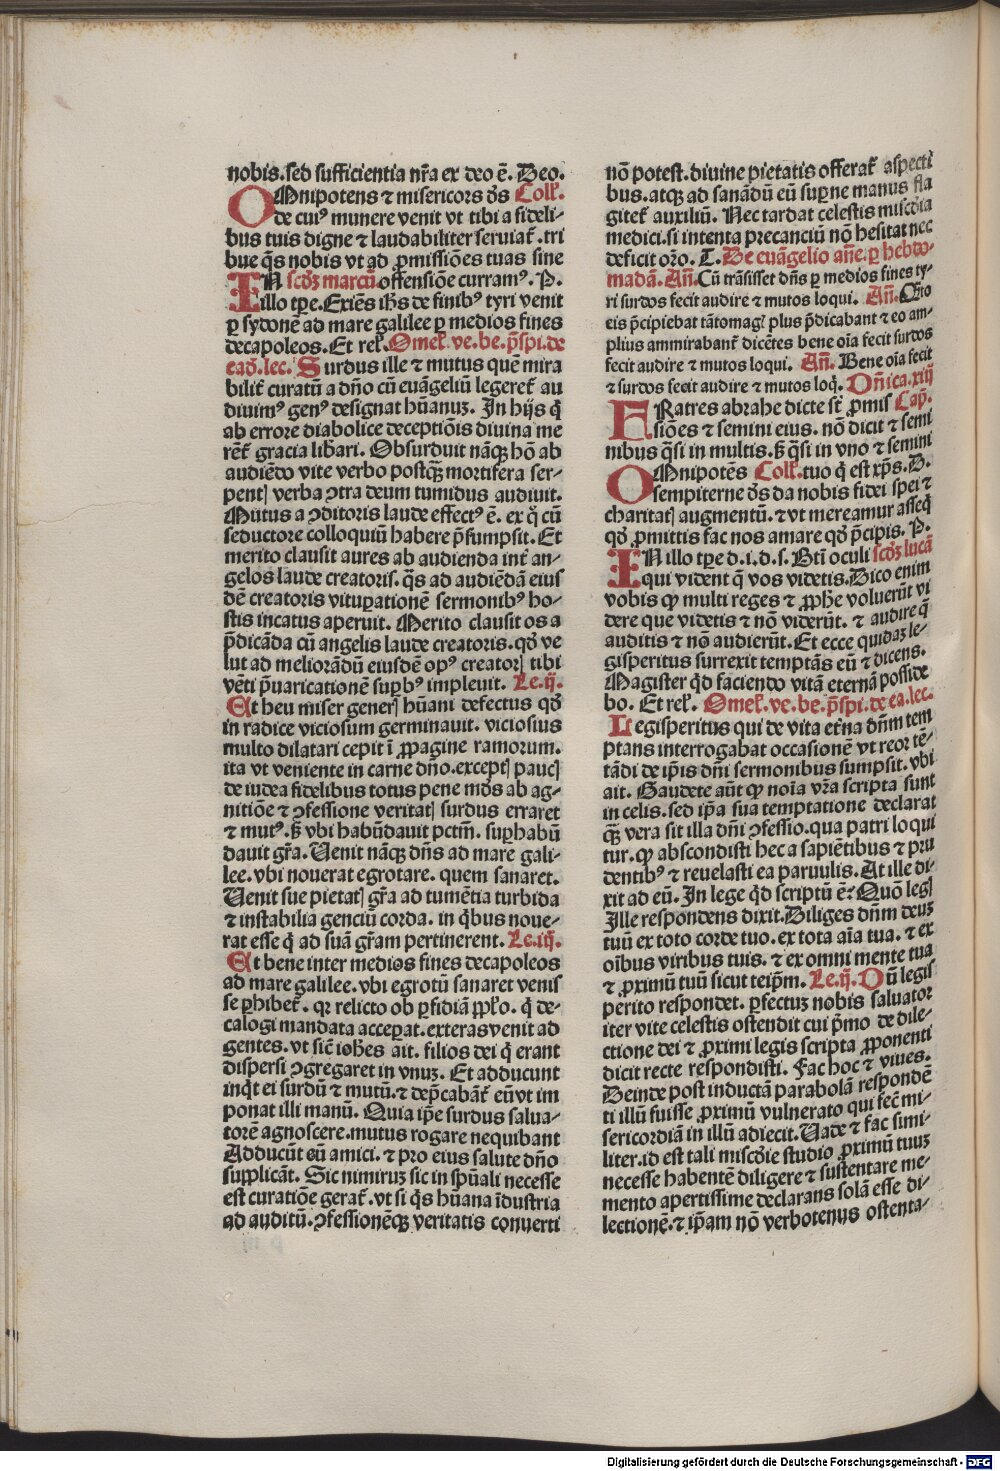 nobis.sed sufficientia nr̄a ex deo ē. Deo.
OMnipotens ⁊ misericors dr̄s Coll'.
de cui⁹ munere venit vt tibi a fideli-
bus tuis digne ⁊ laudabiliter seruiat̄.tri
bue q̄s nobis vt ad ꝓmissiōes tuas sine
IN scd'ꝫ marcū.offensiōe curram⁹. P.
illo tꝑe.Exiēs ih̄s de finib⁹ tyri venit
ꝑ sydonē ad mare galilee ꝑ medios fines
decapoleos.Et rel'.Omel'.ve.be.p̄spi.de
ead'.lec. Surdus ille ⁊ mutus quē mira
bilit̄ curatū a dn̄o cū euāgeliū legeret̄ au
diuim⁹ gen⁹ designat hūanuꝫ. In hijs q̄
ab errore diabolice deceptiōis diuina me
rēt̄ gracia lib̄ari. Obsurduit nāqꝫ hō ab
audiēdo vite verbo postqꝫ̄ mortifera ser-
pentꝭ verba ꝯtra deum tumidus audiuit.
Mutus a ꝯditoris laude effect⁹ ē. ex q̄ cū
seductore colloquiū habere p̄sumpsit. Et
merito clausit aures ab audienda int̄ an-
gelos laude creatoris. q̄s ad audiēdā eius
dē creatoris vituꝑationē sermonib⁹ ho-
stis incatus aperuit. Merito clausit os a
p̄dicāda cū angelis laude creatoris.qd' ve
lut ad meliorādū eiusdē op⁹ creatorꝭ tibi
vēti p̄uaricationē suꝑb⁹ impleuit. Le.ij.
Et heu miser generꝭ hūani defectus qd'
in radice viciosum germinauit. viciosius
multo dilatari cepit ī ꝓpagine ramorum.
ita vt veniente in carne dn̄o.exceptꝭ paucꝭ
de iudea fidelibus totus pene mūds ab ag-
nitiōe ⁊ ꝯfessione veritatꝭ surdus erraret
⁊ mut⁹.sꝫ vbi habūdauit pctm̄. suꝑhabū
dauit gr̄a. Uenit nāqꝫ dn̄s ad mare gali-
lee. vbi nouerat egrotare. quem sanaret.
Uenit sue pietatꝭ gr̄a ad tumētia turbida
⁊ instabilia genciū corda. in q̄bus noue-
rat esse q̄ ad suā gr̄am pertinerent. Le.iij.
Et bene inter medios fines decapoleos
ad mare galilee. vbi egrotū sanaret venis
se ꝑhibet̄. qr relicto ob ꝑfidiā ppl'o. q̄ de-
calogi mandata acceꝑat.exteras venit ad
gentes. vt sic̄ ioh̄es ait. filios dei q̄ erant
dispersi ꝯgregaret in vnuꝫ. Et adducunt
inq̄t ei surdū ⁊ mutū.⁊ dep̄cabāt̄ eū vt im
ponat illi manū. Quia ip̄e surdus salua-
torē agnoscere.mutus rogare nequibant
Adducūt eū amici. ⁊ pro eius salute dn̄o
supplicāt. Sic nimiruꝫ sic in sp̄uali necesse
est curatiōe gerat̄. vt si q̄s hūana īdustria
ad auditū. ꝯfessionēqꝫ veritatis conuerti
nō potest.diuine pietatis offerat̄ aspecti
bus.atqꝫ ad sanādū eū suꝑne manus fla
gitet̄ auxiliū. Nec tardat celestis misc'dia
medici.si intenta precanciū nō hesitat nec
deficit oro. T. De euāgelio an̄e.ꝑ hebdo-
madā. An̄. Cū trāsisset dn̄s ꝑ medios fines ty-
ri surdos fecit audire ⁊ mutos loqui. An̄. Q̄to
eis p̄cipiebat tātomagꝭ plus p̄dicabant ⁊ eo am-
plius ammirabant̄ dicētes bene oīa fecit surdos
fecit audire ⁊ mutos loqui. An̄. Bene oīa fecit
⁊ surdos fecit audire ⁊ mutos loq̄. Dn̄ica.xiij
FRatres abrahe dicte st̄ ꝓmis Cap.
siōes ⁊ semini eius. nō dicit ⁊ semi
nibus q̄si in multis.sꝫ q̄si in vno ⁊ semini
OMnipotēs Coll'.tuo q̄ est xp̄s.D.
sempiterne dr̄s da nobis fidei spei ⁊
charitatꝭ augmentū.⁊ vt mereamur asseq̄
qd' ꝓmittis fac nos amare qd' p̄cipis. P.
IN illo tꝑe d.i.d.s. Bt̄i oculi scd'ꝫ lucā
qui vident q̄ vos videtis.Dico enim
vobis qꝙ multi reges ⁊ ꝓph̄e voluerūt vi
dere que videtis ⁊ nō viderūt. ⁊ audire q̄
auditis ⁊ nō audierūt. Et ecce quidaꝫ le-
gisperitus surrexit temptās eū ⁊ dicens.
Magister qd' faciendo vitā eternā posside
bo. Et rel'. Omel'.ve.be.p̄spi.de ea.lec.
Legisperitus qui de vita et̄na dn̄m tem
ptans interrogabat occasionē vt reor tē-
tādi de ip̄is dn̄i sermonibus sumpsit. vbi
ait. Gaudete aūt qꝙ noīa vr̄a scripta sunt
in celis. sed ip̄a sua temptatione declarat
qꝫ̄ vera sit illa dn̄i ꝯfessio.qua patri loqui
tur.qꝙ abscondisti hec a sapiētibus ⁊ pru
dentib⁹ ⁊ reuelasti ea paruulis. At ille di-
xit ad eū. In lege qd' scriptū ē. Quō legꝭ
Ille respondens dixit.Diliges dn̄m deuꝫ
tuū ex toto corde tuo. ex tota aīa tua. ⁊ ex
oībus viribus tuis. ⁊ ex omni mente tua
⁊ ꝓximū tuū sicut teip̄m. Le.ij. Dū legis
perito respondet. ꝑfectuꝫ nobis saluator
iter vite celestis ostendit cui p̄mo de dile-
ctione dei ⁊ ꝓximi legis scripta ꝓponenti
dicit recte respondisti. Fac hoc ⁊ viues.
Deinde post inductā parabolā respondē
ti illū fuisse ꝓximū vulnerato qui fec̄ mi-
sericordiā in illū adiecit.Uade ⁊ fac simi-
liter.id est tali misc'die studio ꝓximū tuuꝫ
necesse habentē diligere ⁊ sustentare me-
mento apertissime declarans solā esse di-
lectionē.⁊ ip̄am nō verbotenus ostenta-
Digitalisierung gefördert durch die Deutsche Forschungsgemeinschaft - DFG